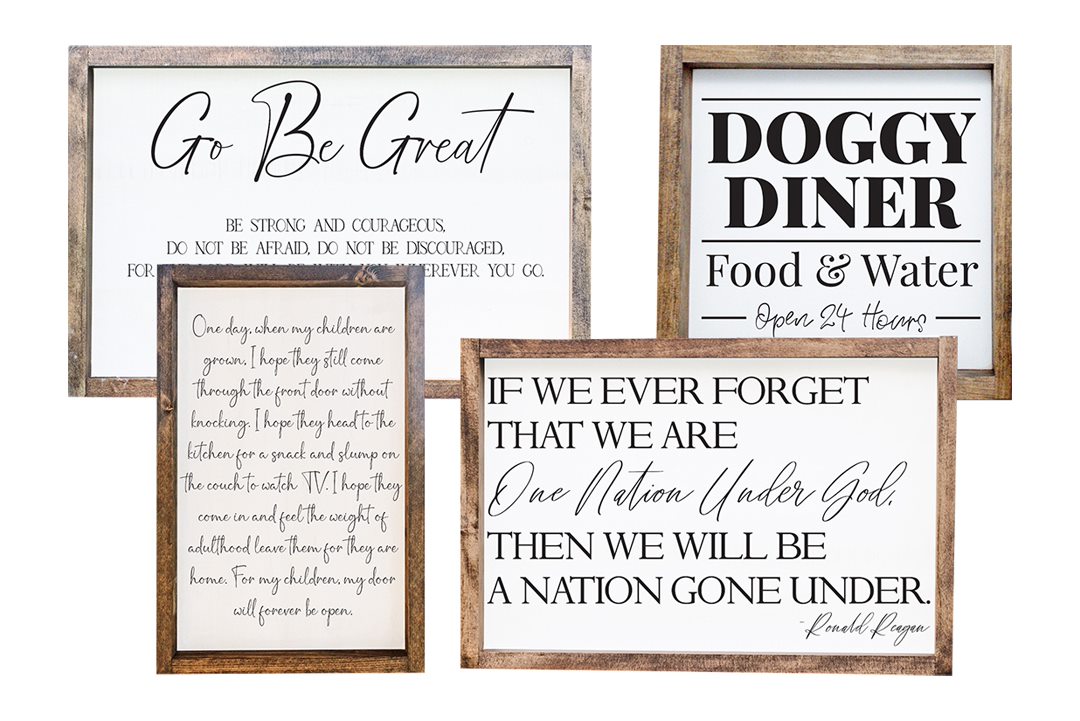 Go Be Great
BE STRONG AND COURAGEOUS,
DO NOT BE AFRAID, DO NOT BE DISCOURAGED,
FOR
EREVER YOU GO.
DOGGY
DINER
Food & Water
Open 24 Hours
One day, when my children are
grown, I hope they still come
through the front door without
knocking. I hope they head to the
kitchen for a snack and slump on
the couch to watch TV. I hope they
come in and feel the weight of
adulthood leave them for they are
home. For my children, my door
will forever be open.
IF WE EVER FORGET
THAT WE ARE
One Nation Under God,
THEN WE WILL BE
A NATION GONE UNDER.
-Ronald Reagan